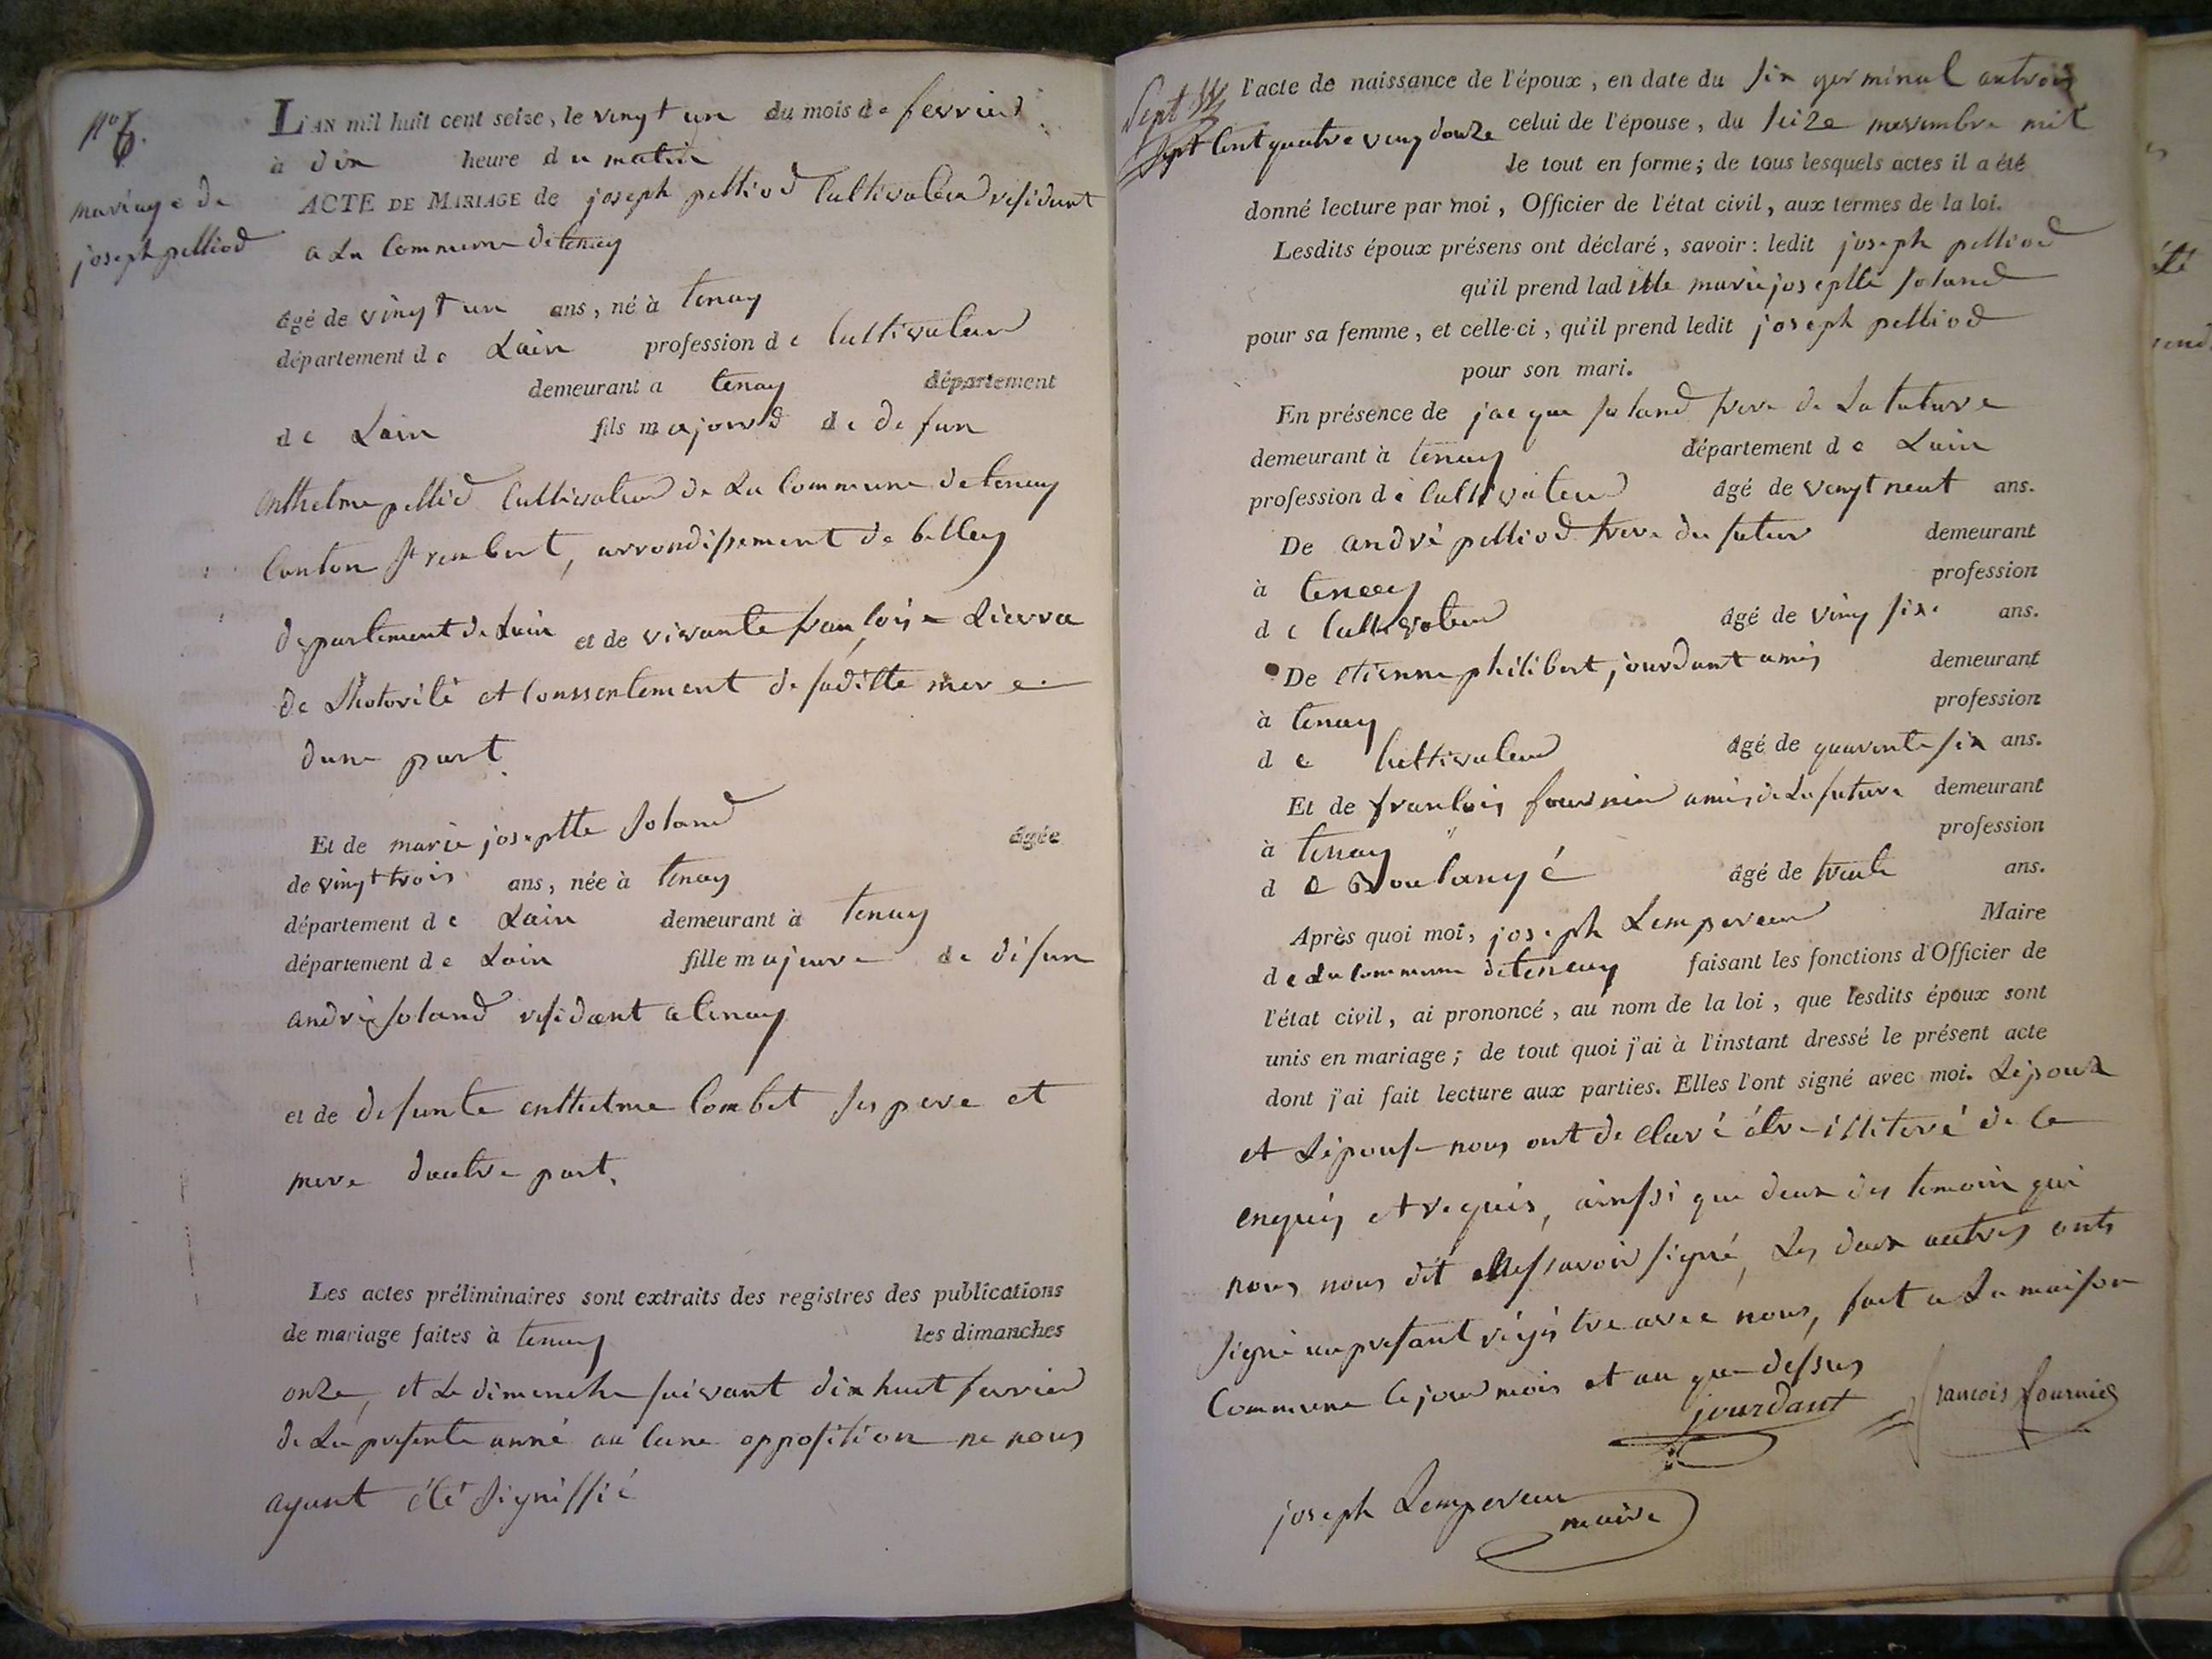 mariage de
joseph pelliod
L'AN mil huit cent seize, le vingt un du mois de fevrier
à dix heure du matin
ACTE DE MARIAGE de joseph pelliod Cultivateur residant
a La Commune de tenay
âgé de vingt un ans, né à tenay
département de Lain profession de Cultivateur
demeurant a tenay département
de Lain fils majeur de defun
anthelme pelliod Cultivateur de La Commune de tenay
Canton St rembert, arrondissement de belley
departement de Lain et de vivante francoise Lierra
de Lhotorité et Conssentement de saditte mere
dune part.
Et de marie josephtte Soland âgée
de vingt trois ans, née à tenay
département de Lain demeurant à tenay
département de Lain fille majeure de defun
andré Soland residant a tenay
et de defunte anthelme Combet ses pere et
mere dautre part.
Les actes préliminaires sont extraits des registres des publications
de mariage faites à tenay les dimanches
onze, et Le dimenche suivant dix huit fevrier
de La presente anné au Cune opposition ne nous
ayant été signiffié
l'acte de naissance de l'époux, en date du six germinal an trois
celui de l'épouse, du seize novembre mil
sept Cent quatre ving douze
le tout en forme; de tous lesquels actes il a été
donné lecture par moi, Officier de l'état civil, aux termes de la loi.
Lesdits époux présens ont déclaré, savoir: ledit joseph pelliod
qu'il prend laditte marie josephtte Soland
pour sa femme, et celle-ci, qu'il prend ledit joseph pelliod
pour son mari.
En présence de jacque Soland frere de La future
demeurant à tenay département de Lain
profession de Cultivateur âgé de vengt neuf ans.
De andré pelliod frere du futur demeurant
à tenay profession
de Cultivateur âgé de ving six ans.
De etienne philibert jourdant amis demeurant
à tenay profession
de Cultivateur âgé de quarente six ans.
Et de francois fournier amis de La future demeurant
à tenay profession
de Boulangé âgé de trente ans.
Après quoi moi, joseph Lempereur Maire
de La commune de tenay faisant les fonctions d'Officier de
l'état civil, ai prononcé, au nom de la loi, que lesdits époux sont
unis en mariage; de tout quoi j'ai à l'instant dressé le présent acte
dont j'ai fait lecture aux parties. Elles l'ont signé avec moi. Lépoux
et Lépouse nous ont de claré étre illiteré de Ce
enquis et requis, ainssi que deux des temoin qui
nous dit savoir signé, Les deux autres onts
signé au present régistre avec nous, fait a La maison
Commune Ce jour mois et an que dessus
jourdant
francois fournier
joseph Lempereur
maire